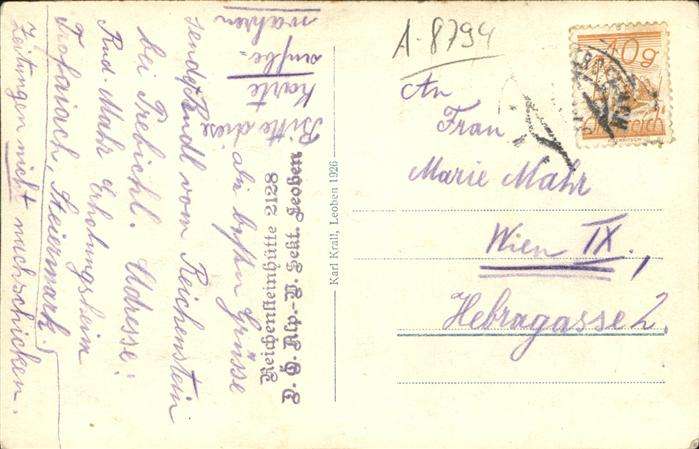 A-8794
10g
Österreich
An
Frau
Marie Mahr
Wien IX.,
Hebragasse 2.
Karl Krall, Leoben 1926
Reichensteinhütte 2128
D. Ö. Alp.-V. Sekt. Leoben
Die besten Grüsse
sendet vom Reichenstein
bei Prebichl. Adresse:
Rud. Mahr Erholungsheim
Trofaiach, Steiermark.
Zeitungen nicht nachschicken.
Bitte diese
Karte
aufbe-
wahren